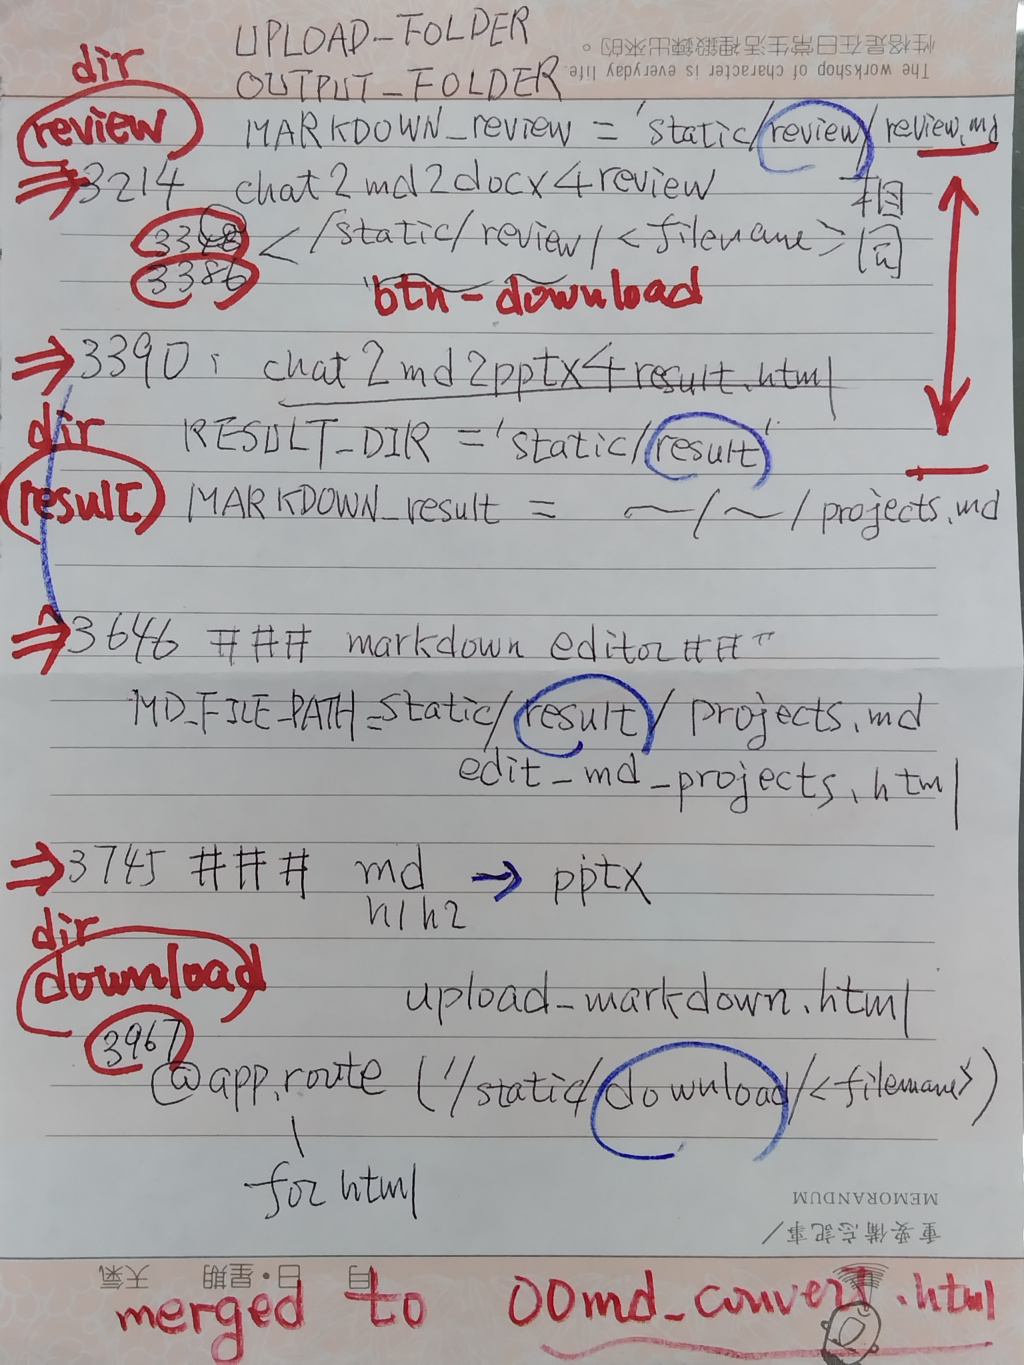 UPLOAD_FOLDER
OUTPUT_FOLDER
性格是在日常生活裡鍛鍊出來的。
The workshop of character is everyday life.
dir
review
MARKDOWN_review = 'static/review/review.md
⇒3214 chat2md2docx4review
相同
3348 </static/review/<filename>
3386
btn-download
⇒3390: chat2md2pptx4result.html
dir
result
RESULT_DIR = 'static/result'
MARKDOWN_result = ~/~/projects.md
⇒3646 ### markdown editor ###
MD_FILE_PATH=static/result/projects.md
edit_md_projects.html
⇒3745 ### md → pptx
h1h2
dir
download
upload_markdown.html
3967
@app.route ('/static/download/<filename>)
for html
MEMORANDUM
重要備忘記事/
月 日·星期 天氣
merged to 00md_convert.html